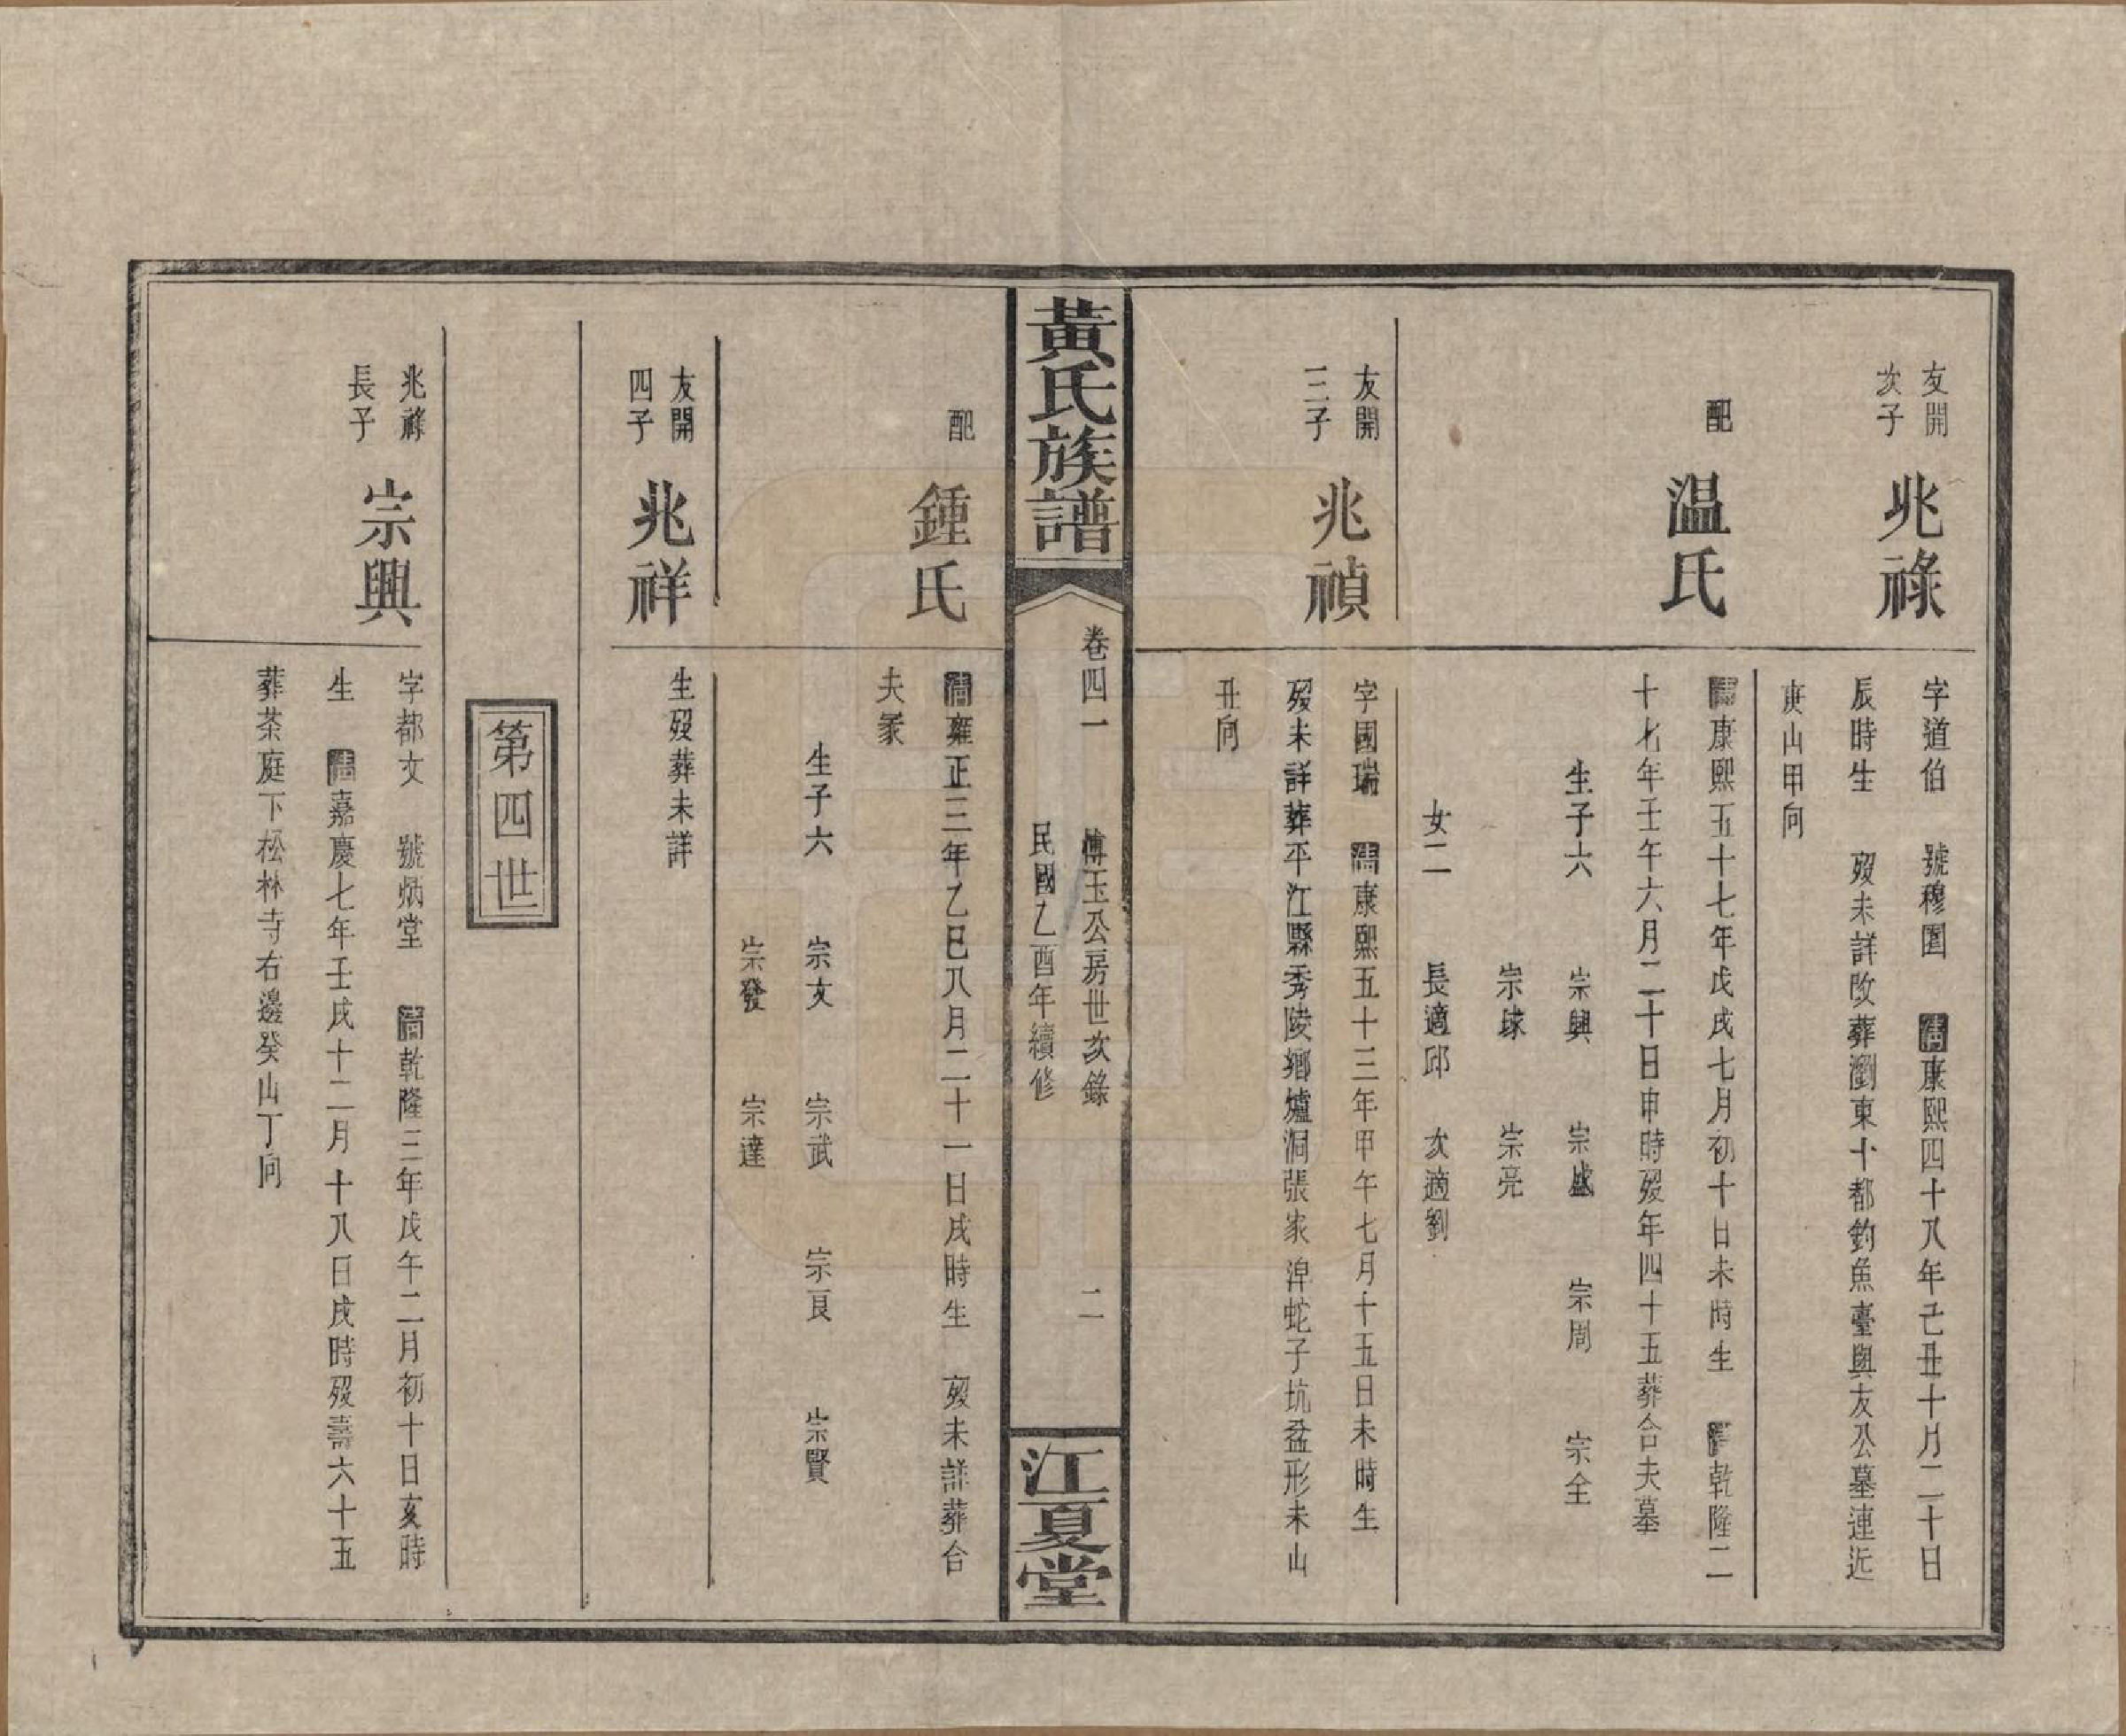 友開
次子
兆祿
字道伯 號穆園 清康熙四十八年己丑十月二十日
辰時生 歿未詳改葬瀏東十都釣魚臺與友公墓連近
庚山甲向
配
温氏
清康熙五十七年戊戌七月初十日未時生 清乾隆二
十七年壬午六月二十日申時歿年四十五葬合夫墓
生子六 宗興 宗盛 宗周 宗全
宗球 宗亮
女二 長適邱 次適劉
友開
三子
兆禎
字國瑞 清康熙五十三年甲午七月十五日未時生
歿未詳葬平江縣秀陵鄉爐洞張家渒蛇子坑盆形未山
丑向
黃氏族譜
卷四一 傅玉公房世次錄 二
民國乙酉年續修
江夏堂
配
鍾氏
清雍正三年乙巳八月二十一日戌時生 歿未詳葬合
夫冢
生子六 宗文 宗武 宗良 宗賢
宗發 宗達
友開
四子
兆祥
生歿葬未詳
第四世
兆祿
長子
宗興
字都文 號炳堂 清乾隆三年戊午二月初十日亥時
生 清嘉慶七年壬戌十二月十八日戌時歿壽六十五
葬茶庭下松林寺右邊癸山丁向